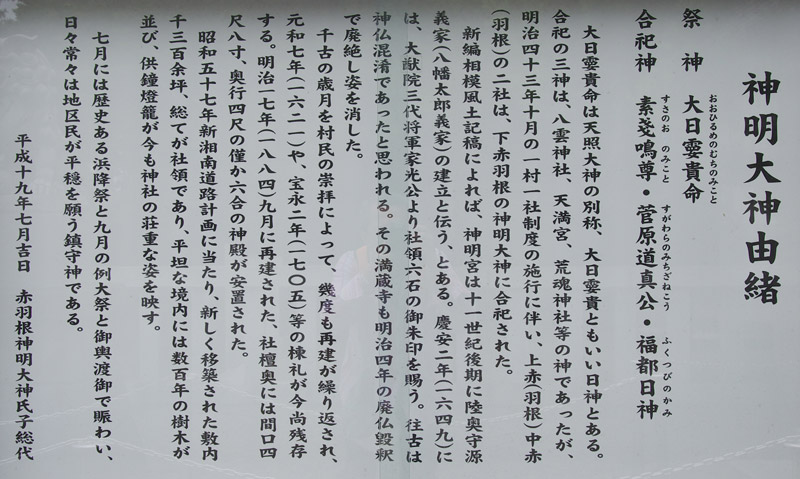 神明大神由緒
祭神 大日孁貴命
おおひるめのむちのみこと
合祀神 素戔鳴尊・菅原道真公・福都日神
すさのおのみこと すがわらのみちざねこう ふくつびのかみ
大日孁貴命は天照大神の別称、大日孁貴ともいい日神とある。
合祀の三神は、八雲神社、天満宮、荒魂神社等の神であったが、
明治四十三年十月の一村一社制度の施行に伴い、上赤(羽根)中赤
(羽根)の二社は、下赤羽根の神明大神に合祀された。
新編相模風土記稿によれば、神明宮は十一世紀後期に陸奥守源
義家(八幡太郎義家)の建立と伝う、とある。慶安二年(一六四九)に
は、大猷院三代将軍家光公より社領六石の御朱印を賜う。往古は
神仏混淆であったと思われる。その満蔵寺も明治四年の廃仏毀釈
で廃絶し姿を消した。
千古の歳月を村民の崇拝によって、幾度も再建が繰り返され、
元和七年(一六二一)や、宝永二年(一七〇五)等の棟札が今尚残存
する。明治一七年(一八八四)九月に再建された、社檀奥には間口四
尺八寸、奥行四尺の僅か六合の神殿が安置された。
昭和五十七年新湘南道路計画に当たり、新しく移築された敷内
千三百余坪、総てが社領であり、平坦な境内には数百年の樹木が
並び、供鐘燈籠が今も神社の荘重な姿を映す。
七月には歴史ある浜降祭と九月の例大祭と御輿渡御で賑わい、
日々常々は地区民が平穏を願う鎮守神である。
平成十九年七月吉日 赤羽根神明大神氏子総代